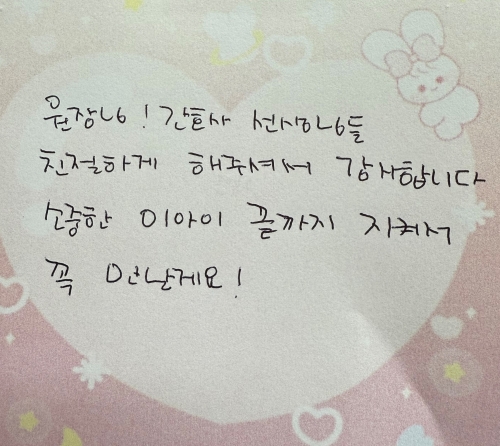 원장님! 간호사 선생님들
친절하게 해주셔서 감사합니다
소중한 이아이 끝까지 지켜서
꼭 만날게요!